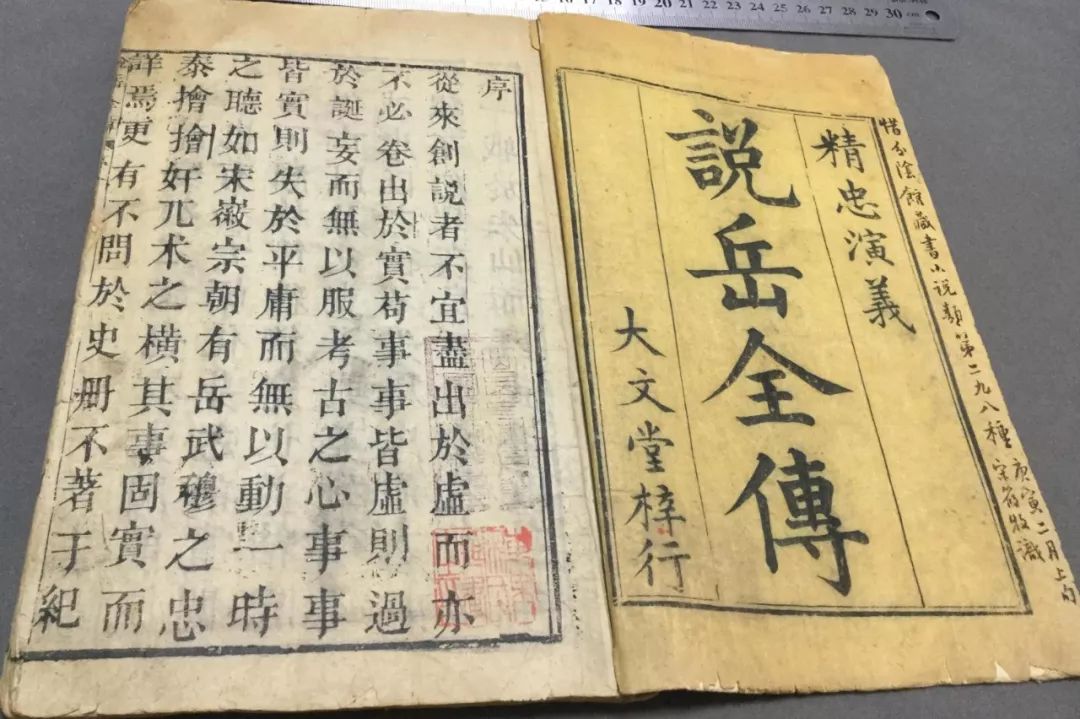 惜分陰館藏書小說類第二九八種
庚寅二月上旬
精忠演義
說岳全傳
大文堂梓行
序
從來創說者不宜盡出於虛而亦
不必卷出於實苟事事皆虛則過
於誕妄而無以服考古之心事事
皆實則失於平庸而無以動一時
之聽如宋徽宗朝有岳武穆之忠
泰檜檜奸兀术之橫其事固實而
詳焉更有不問於史冊不著于紀
16 17 18 19 20 21 22 23 24 25 26 27 28 29 30 cm